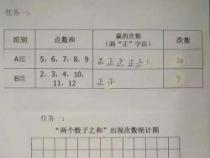 任务一：
组别 点数和 赢的次数 次数
(画“正”字法)
A组 5、6、7、8、9 正正正正
B组 2、3、4、10、 正 9
11、12
任务一：
“两个骰子之和”出现次数统计图